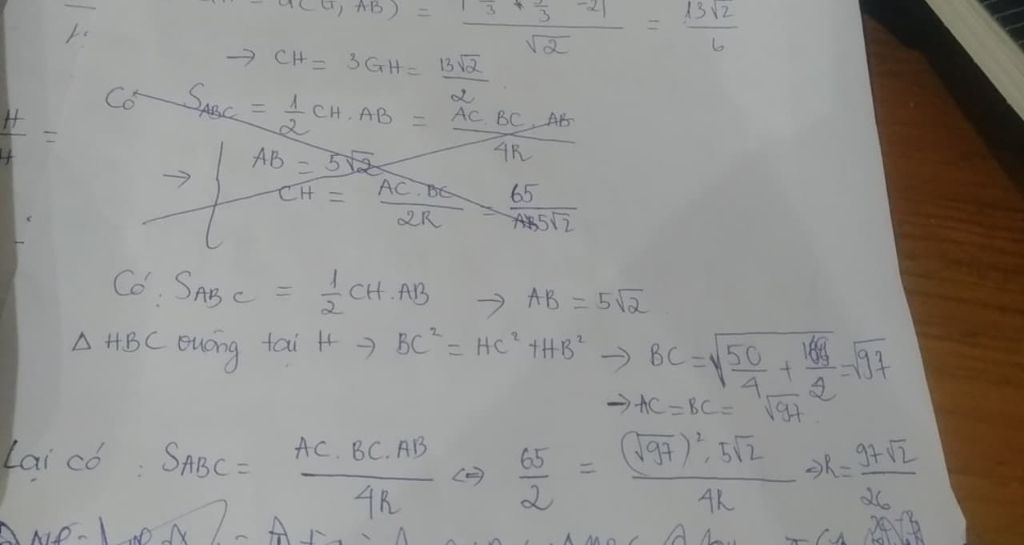 d(G, AB) = |7/3 + 7/3 - 2| / √2 = 13√2/6
→ CH = 3GH = 13√2/2
Có S_ABC = 1/2 CH.AB = AC.BC.AB/4R
→ { AB = 5√2
CH = AC.BC/2R = 65/5√2
Có: S_ABC = 1/2 CH.AB → AB = 5√2
Δ HBC vuông tại H → BC² = HC² + HB² → BC = √(50/4 + 169/2) = √97
→ AC = BC = √97
Lại có : S_ABC = AC.BC.AB/4R ⇔ 65/2 = (√97)².5√2/4R ⇒ R = 97√2/26